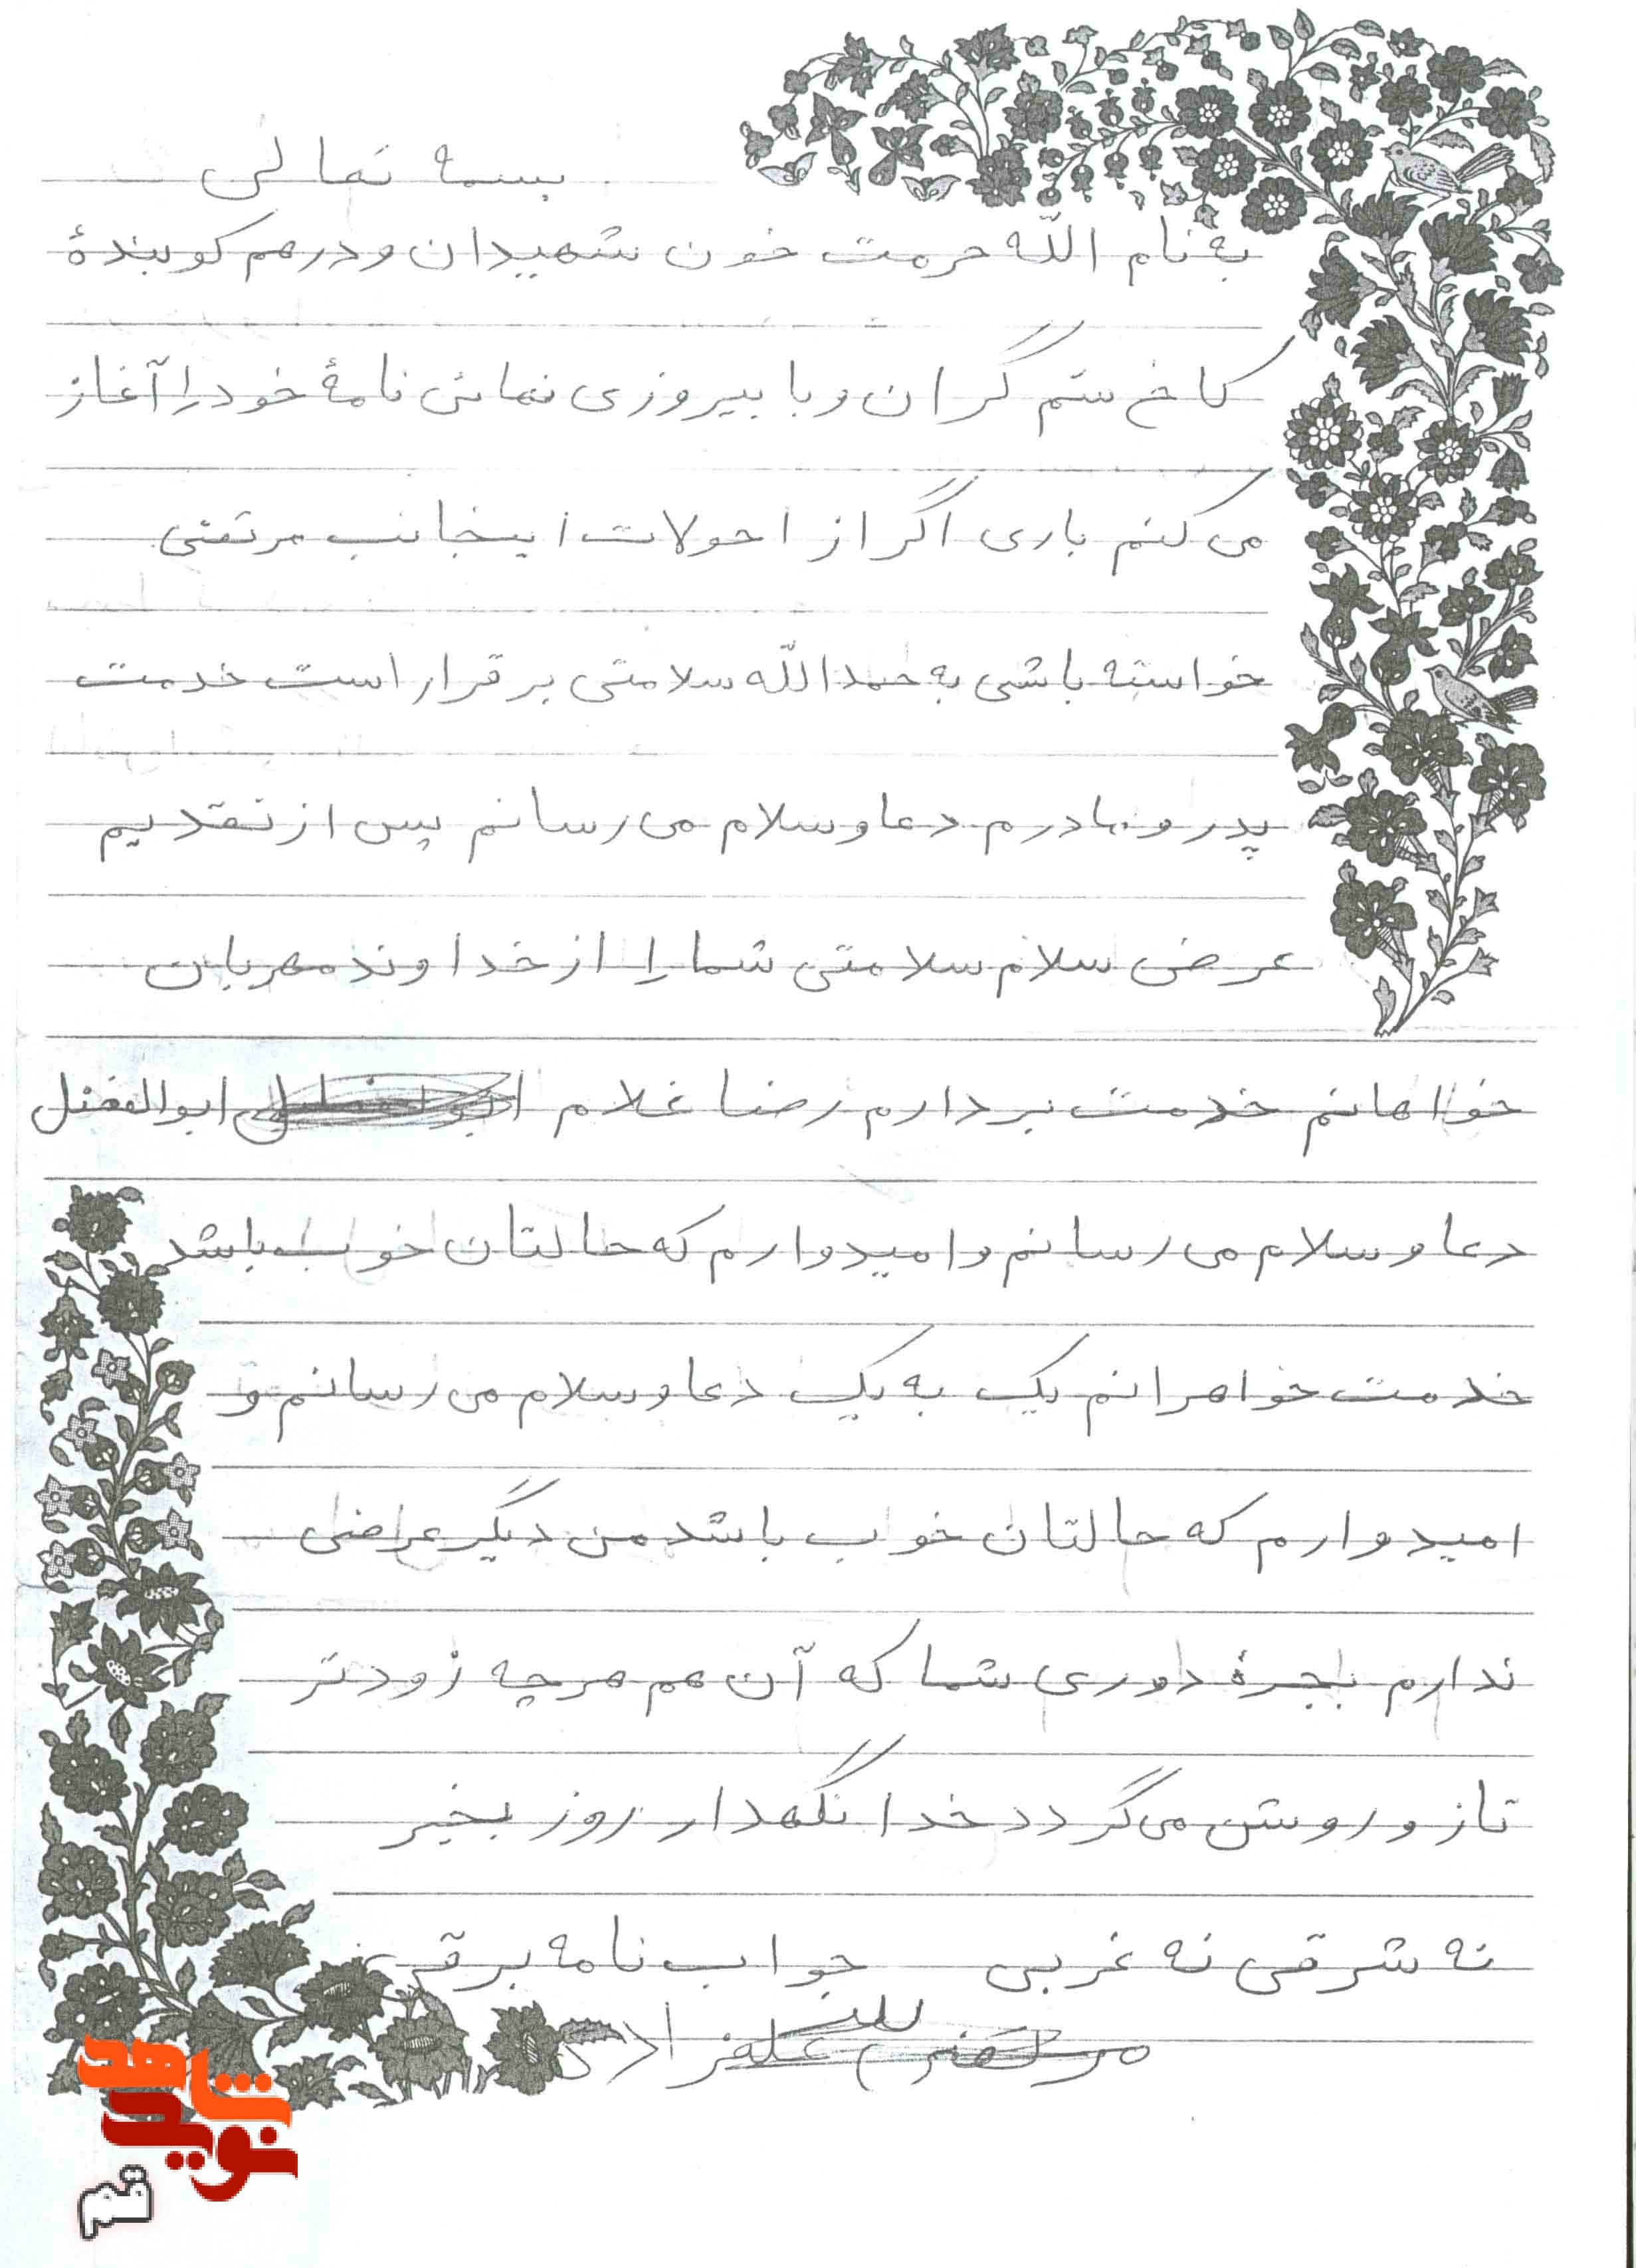 بسمه تعالی
به نام اللّه حرمت خون شهیدان و درهم کوبندهٔ
کاخ ستم گران و با پیروزی نهائی نامهٔ خود را آغاز
می کنم باری اگر از احولات اینجانب مرتضی
خواسته باشی به حمداللّه سلامتی برقرار است خدمت
پدر و مادرم دعا و سلام می رسانم پس از تقدیم
عرض سلام سلامتی شما را از خداوند مهربان
خواهانم خدمت بردارم رضا غلام ابوالفضل
دعا و سلام می رسانم و امیدوارم که حالتان خوب باشد
خدمت خواهرانم یک به یک دعا و سلام می رسانم و
امیدوارم که حالتان خوب باشد من دیگر عراضی
ندارم بجزهٔ دوری شما که آن هم هرچه زودتر
تاز و روشن می گردد خدا نگهدار روز بخیر
نه شرقی نه غربی جواب نامه برقی
مرتضی
نوید شاهد
قم